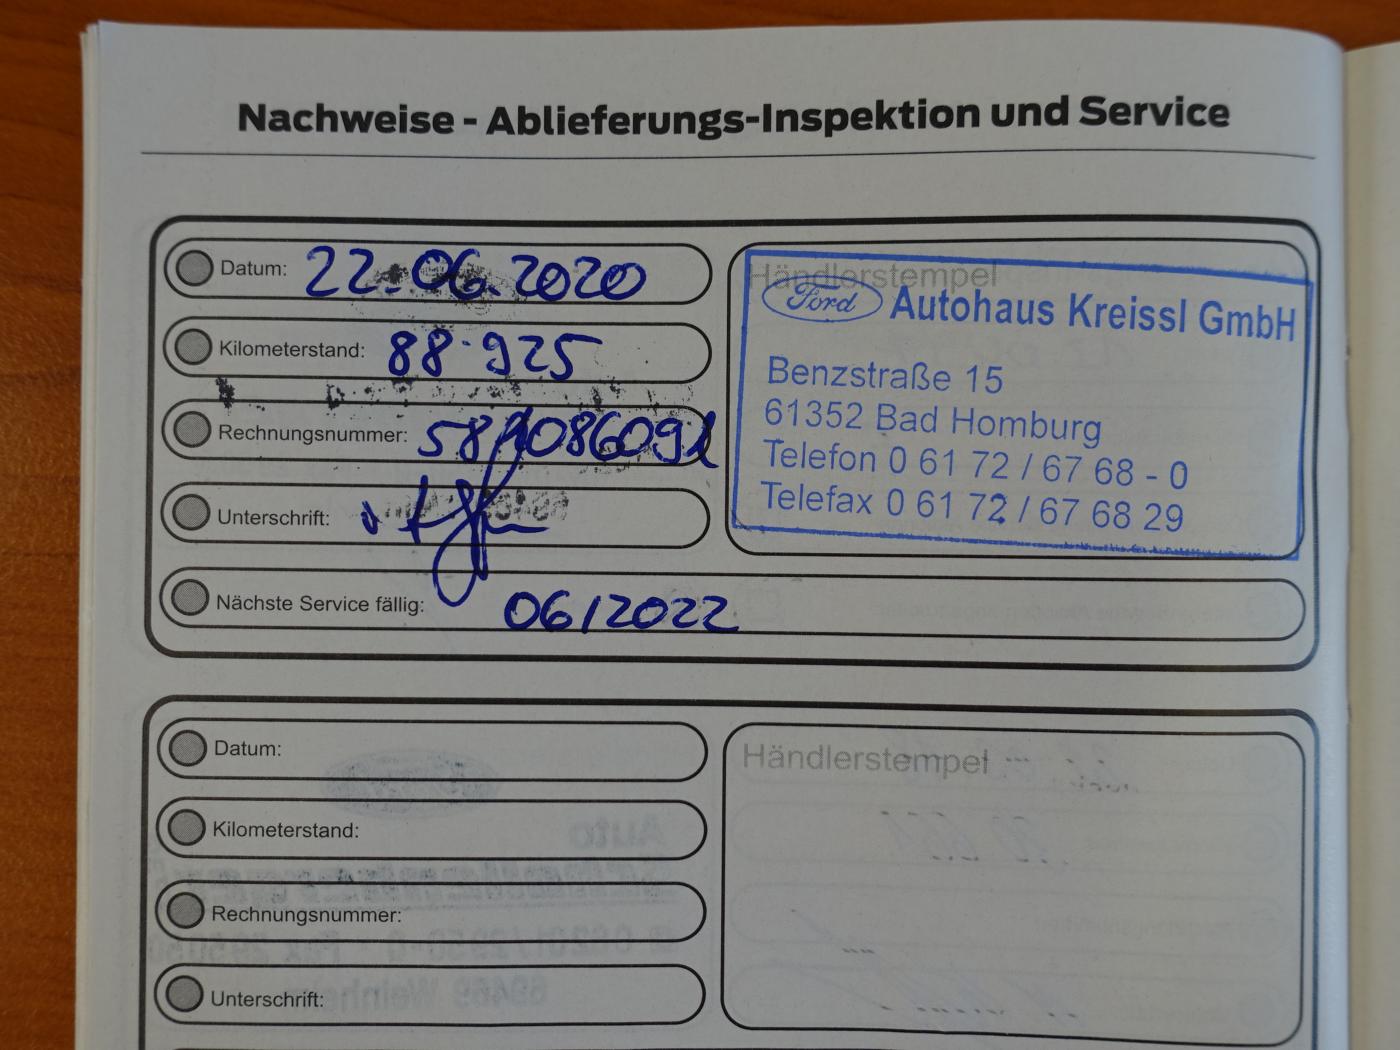 Nachweise - Ablieferungs-Inspektion und Service
Datum: 22.06.2020
Kilometerstand: 88.925
Rechnungsnummer:
Unterschrift:
Nächste Service fällig: 06/2022
Händlerstempel
Ford Autohaus Kreissl GmbH
Benzstraße 15
61352 Bad Homburg
Telefon 0 61 72 / 67 68 - 0
Telefax 0 61 72 / 67 68 29
Datum:
Kilometerstand:
Rechnungsnummer:
Unterschrift:
Händlerstempel